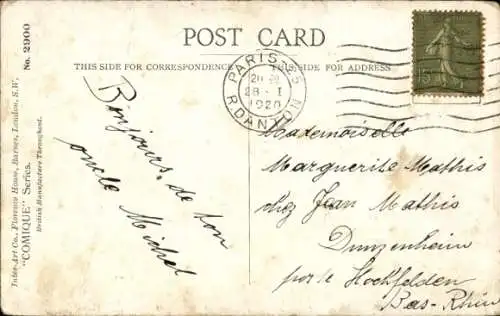 POST CARD
THIS SIDE FOR CORRESPONDENCE
THIS SIDE FOR ADDRESS
No. 2900
"COMIQUE" Series.
Inter-Art Co., Florence House, Barnes, London, S.W.
British Manufacture Throughout.
PARIS 25
28 - I
1920
R. DANTON
15
Bonjours, de ton
oncle Michel
Mademoiselle
Marguerite Mathis
chez Jean Mathis
Dunzenheim
par le Hochfelden
Bas-Rhin